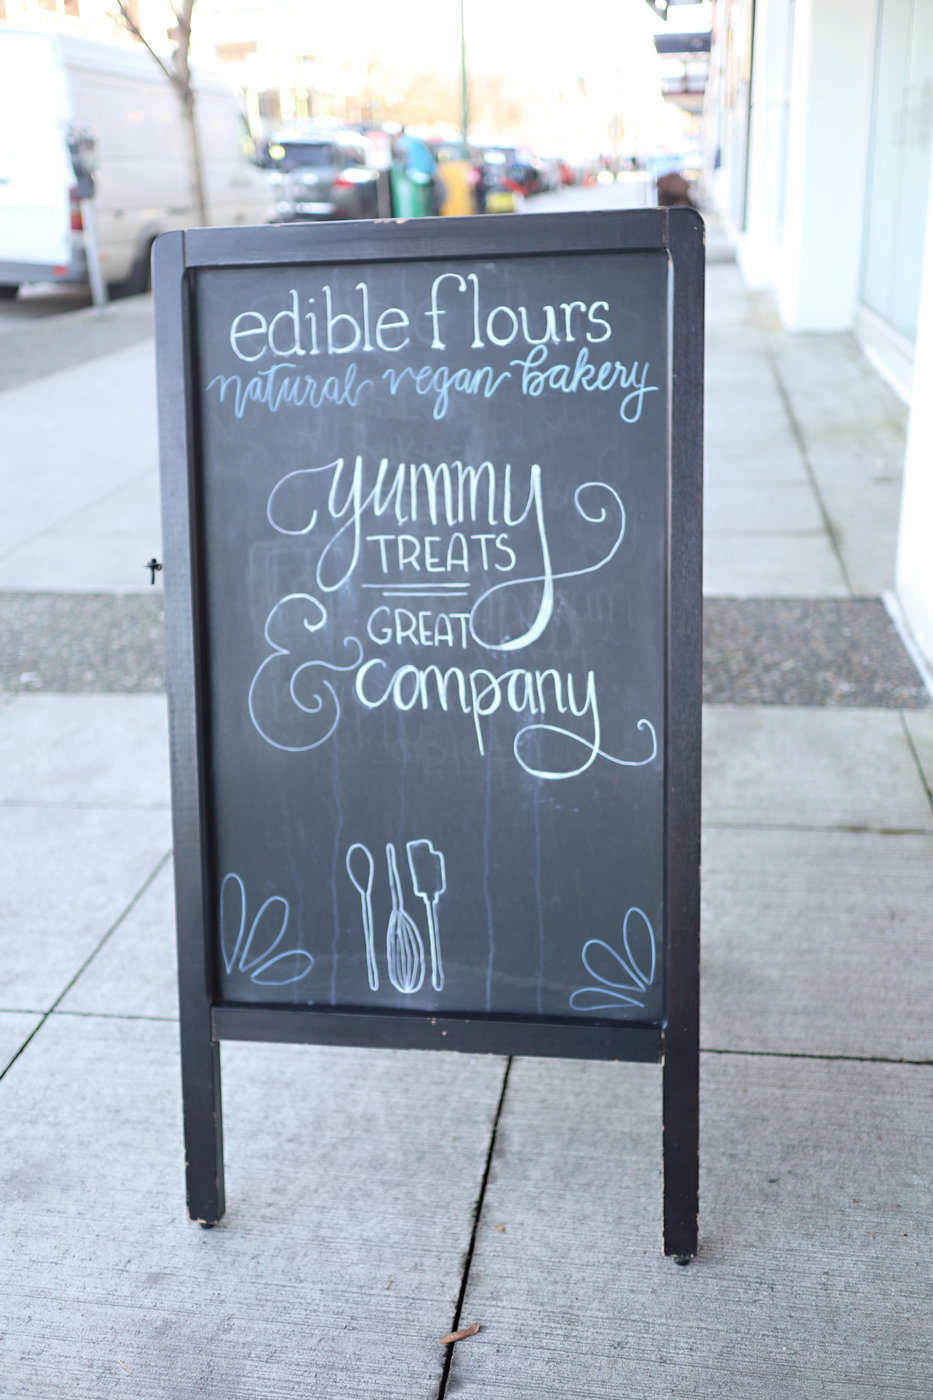 edible flours
natural vegan bakery
yummy
TREATS
GREAT
& company